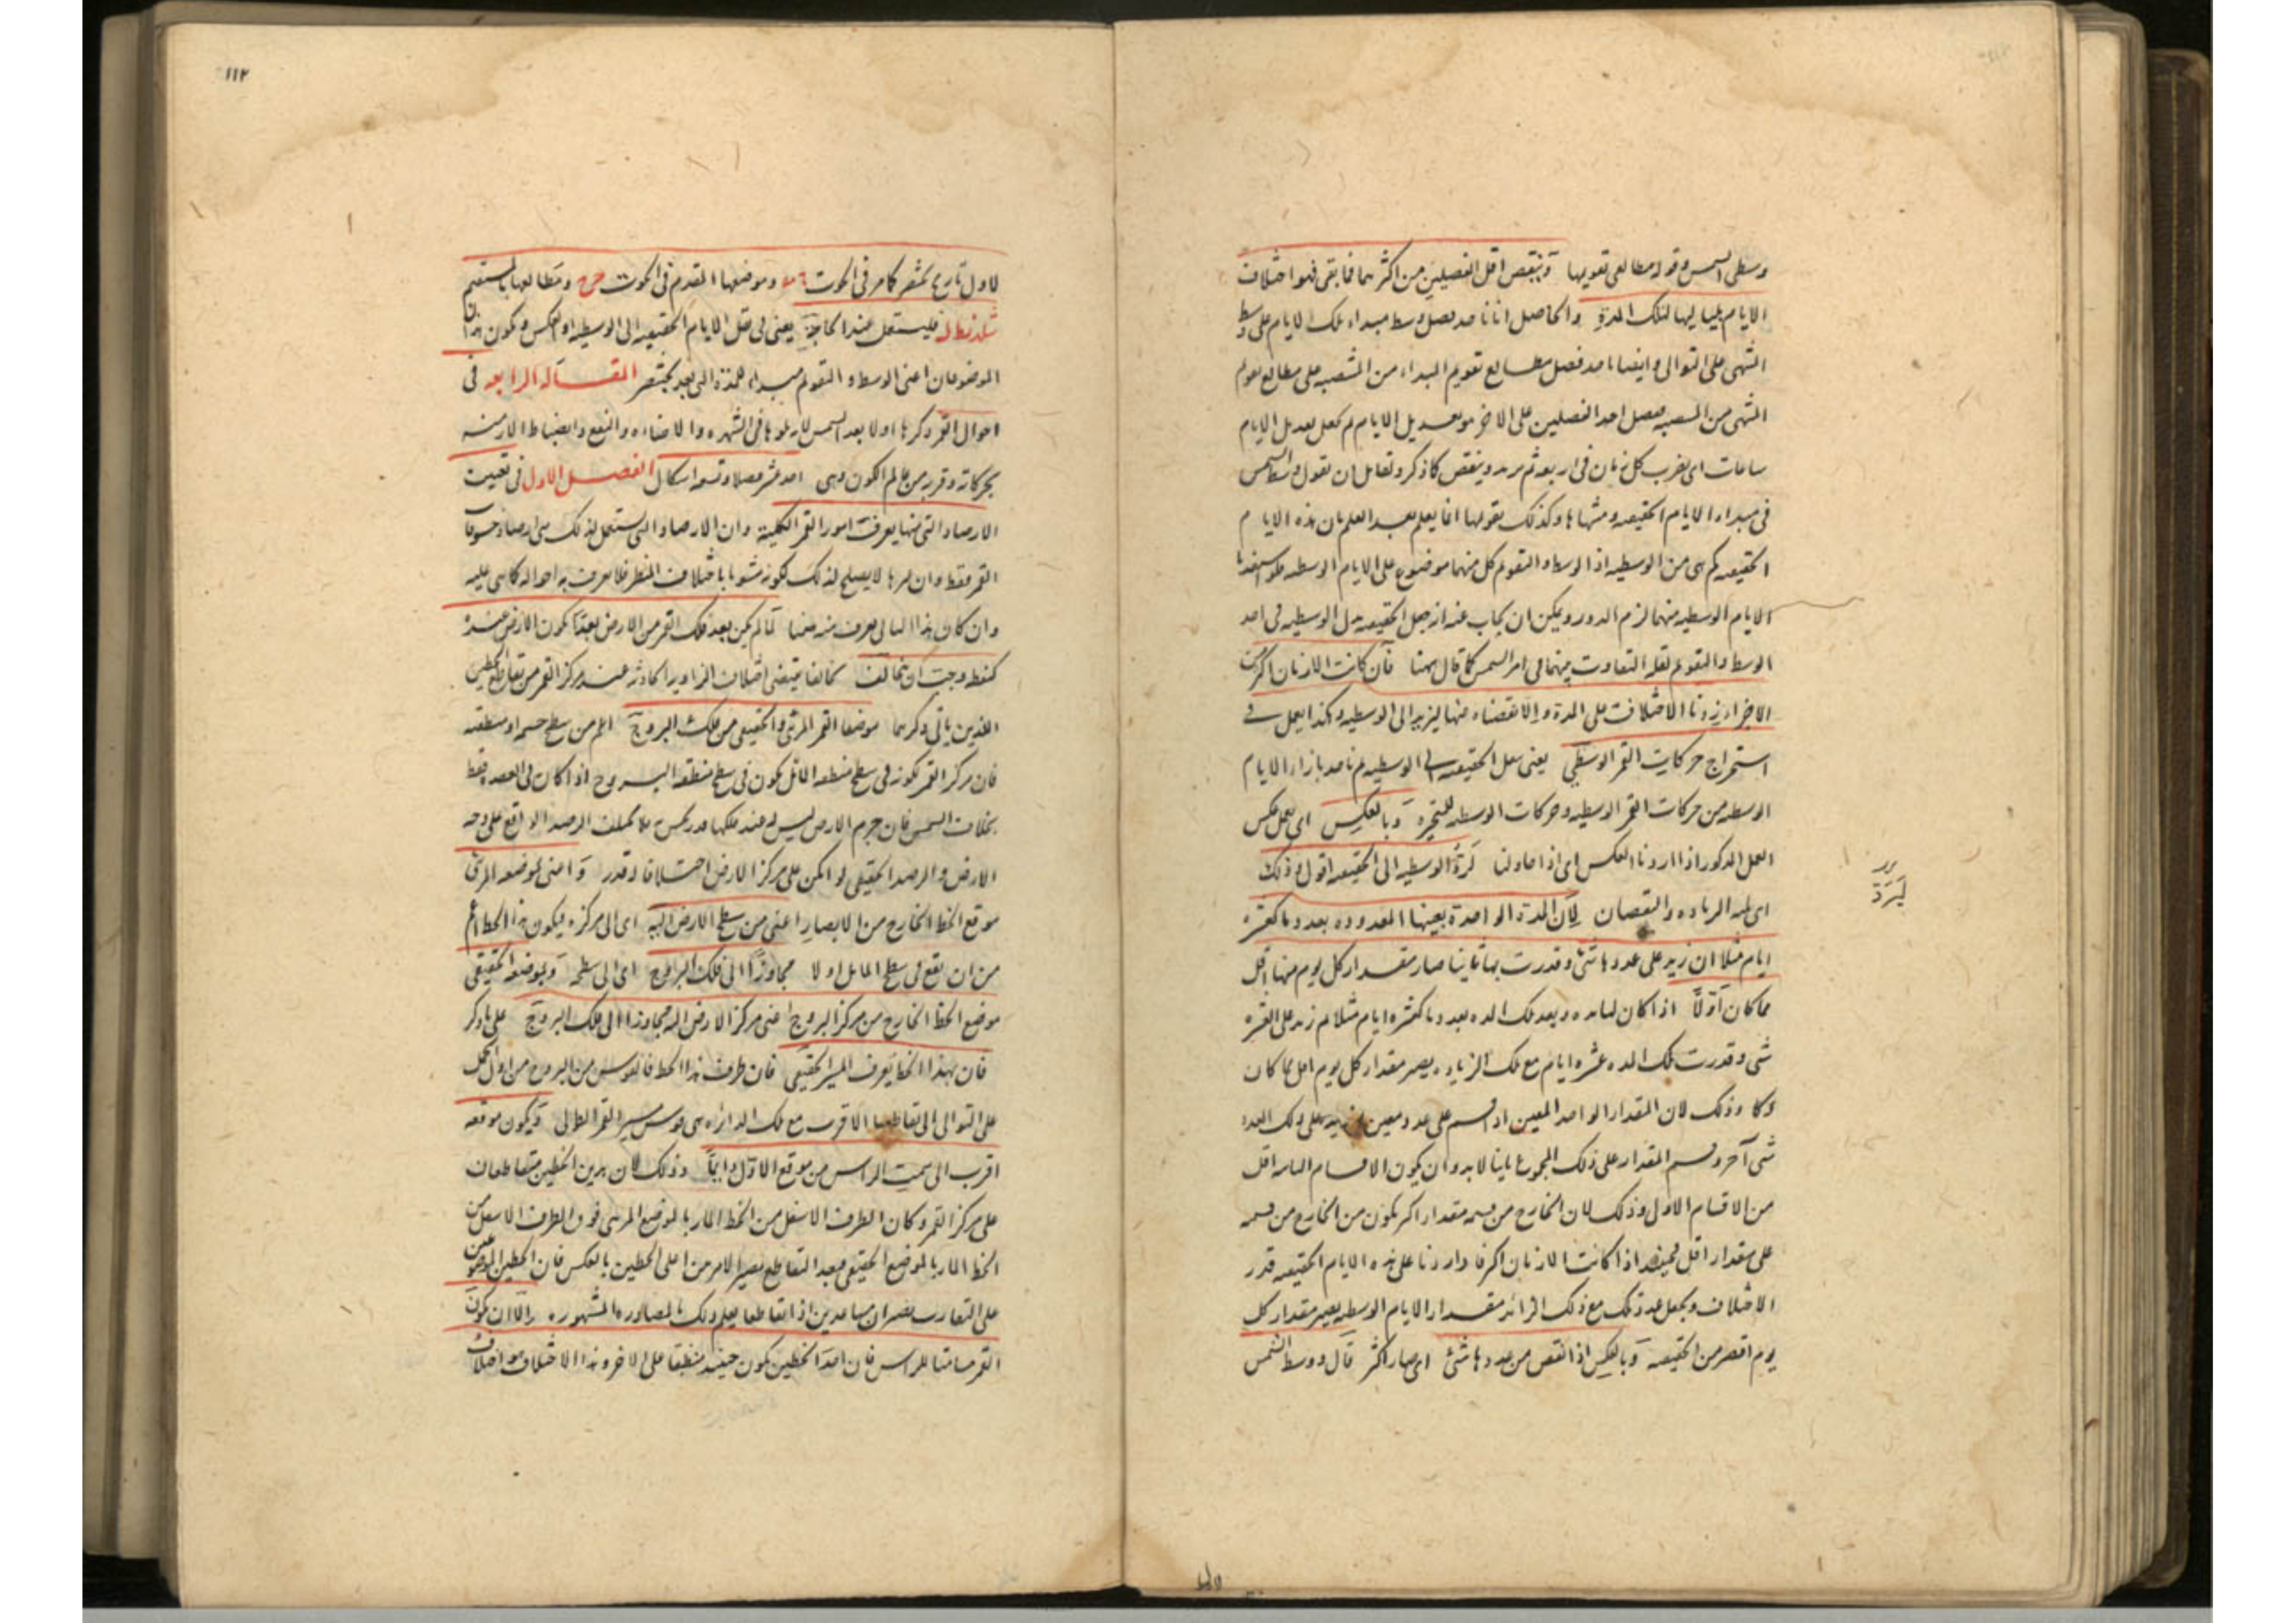 وسطى الشمس وقوله مطالعى تقويمها وينقص اقل الفصلين من اكثرهما فما بقى فهو اختلاف
الايام بلياليها لتلك المدة والحاصل انا ناخذ فصل وسط مبداء تلك الايام على وسط
المنتهى على التوالى وايضا ناخذ فصل مطالع تقويم المبداء من على مطالع تقويم
المنتهى من فصل احد الفصلين على الاخر هو تعديل الايام ثم نجعل تعديل الايام
ساعات اى نضرب كل زمان فى اربعة ثم يزيد وينقص كما ذكر ولقائل ان يقول وسط الشمس
فى مبداء الايام الحقيقيه ومنتهاها وكذلك تقويمها انما يعلم بعد العلم بان هذه الايام
الحقيقيه كم هى من الوسطيه اذ الوسط والتقويم كل منهما موضوع على الايام الوسطيه فلو استفدنا
الايام الوسطيه منهما لزم الدور ويمكن ان يجاب عنه انه جعل الحقيقيه بدل الوسطيه فى اخذ
الوسط والتقويم لقلة التفاوت بينهما فى امر الشمس كما قال بهنا فان كانت الازمان اكثر من
الاجزاء زدنا الاختلاف على المدة والا نقصناه منها ليزيد الى الوسطيه وهكذا يعمل فى
استخراج حركات القمر الوسطى يعنى نقل الحقيقيه الى الوسطيه ثم ناخذ بازاء الايام
الوسطيه من حركات القمر الوسطيه وحركات الوسطيه للمتحيرة وبالعكس اى يعمل عكس
العمل المذكور اذا اردنا العكس اى اذا حاولنا لرد الوسطيه الى الحقيقيه اقول وذلك
لرد
اى الزيادة والنقصان لان المدة الواحدة بعينها المعدودة بعدد ما كعشرة
ايام مثلا ان زيد على عددها شئ وقدرت بها ثانيا صار مقدار كل يوم منها اقل
مما كان اولا اذا كان لنا مدة وبعد تلك المدة بعدد ما كعشرة ايام مثلا ثم زيد على العشرة
شئ وقدرت تلك المدة عشرة ايام مع تلك الزيادة يصير مقدار كل يوم اقل مما كان
وذلك لان المقدار الواحد المعين اذا قسم على عدد معين ثم زيد على ذلك العدد
شئ آخر وقسم المقدار على ذلك المجموع ثانيا لا بد وان يكون الاقسام الثانية اقل
من الاقسام الاول وذلك لان الخارج من قسمة مقدار اكثر يكون من الخارج من قسمه
على مقدار اقل فحينئذ اذا كانت الازمان اكثر فاذا زدنا على هذه الايام الحقيقيه قدر
الاختلاف ونجعل عدد تلك مع ذلك الزائد مقدار الايام الوسطيه يصير مقدار كل
يوم اقصر من الحقيقيه وبالعكس اذا انتقص من عددها شئ اى صار اكثر قال ووسط الشمس
١١٢
لاول تاريخ بختنصر كما مر فى الحوت ومو وموضعها المقوم فى الحوت ح ح ومطالعها بالمستقيم
شلد نطل فليستعمل عند الحاجة يعنى فى نقل الايام الحقيقيه الى الوسطيه او العكس ويكون هذان
الموضوعان اعنى الوسط والتقويم مبداء للمدة التى بعد بختنصر المقالة الرابعه فى
احوال القمر ذكرها اولا بعد الشمس لانه تلوها فى الشهرة والاضاءة والنفع وانضباط الازمنه
بحركاته وقربه من عالم الكون وهى احد عشر فصلا وتسعة اشكال الفصل الاول فى تعيين
الارصاد التى منها يعرف امور القمر الكلية وان الارصاد التى يستعمل لذلك هى ارصاد خسوفات
القمر فقط وان غيرها لا يصلح لذلك لكونه مشوبا باختلاف المنظر فلا يعرف به احواله كما هى عليه
وان كان هذا لما لم يكن بعد فلك القمر من الارض بعدا يكون الارض عنده
كنقطة وجب ان تخالف تخالفا يقتضى اختلاف الزاوية الحادثة عند مركز القمر من تقاطع الخطين
الذين ياتى ذكرهما موضعا القمر المرئى والحقيقى من فلك البروج اعم من سطح جسمه او منطقته
فان مركز القمر لكونه فى سطح منطقة المائل يكون فى سطح منطقة البروج اذا كان فى العقدة فقط
بخلاف الشمس فان جرم الارض ليس له عند فلكها قدر يحس به فلا يختلف الرصد الواقع على وجه
الارض والرصد الحقيقى لو امكن على مركز الارض اختلافا له قدر واعنى بموضعه المرئى
موقع الخط الخارج من الابصار اعنى من سطح الارض اليه اى الى مركزه فيكون هذا الخط اعم
من ان يقع فى سطح المائل او لا مجاوزا الى فلك البروج اى الى سطحه وبموضعه الحقيقى
موضع الخط الخارج من مركز البروج اعنى مركز الارض اليه مجاوزا الى فلك البروج على ما ذكر
فان بهذا الخط يعرف المسير الحقيقى فان طرف هذا الخط فالقوس من البروج من اول الحمل
على التوالى الى تقاطعها الاقرب مع تلك الدائرة هى قوس مسير القمر الطولى ويكون موقعه
اقرب الى سمت الراس من موقع الاول دائما وذلك لان هذين الخطين متقاطعان
على مركز القمر وكان الطرف الاسفل من الخط المار بالموضع المرئى فوق الطرف الاسفل من
الخط المار بالموضع الحقيقى فبعد التقاطع يصير الامر من اعلى الخطين بالعكس فان الخطين الموضوعين
على التقارب يصيران متباعدين اذا تقاطعا يعلم ذلك بالمصادرة المشهورة الا ان يكون
القمر مسامتا للراس فان احد الخطين يكون حينئذ منطبقا على الاخر وهذا الاختلاف هو اختلاف